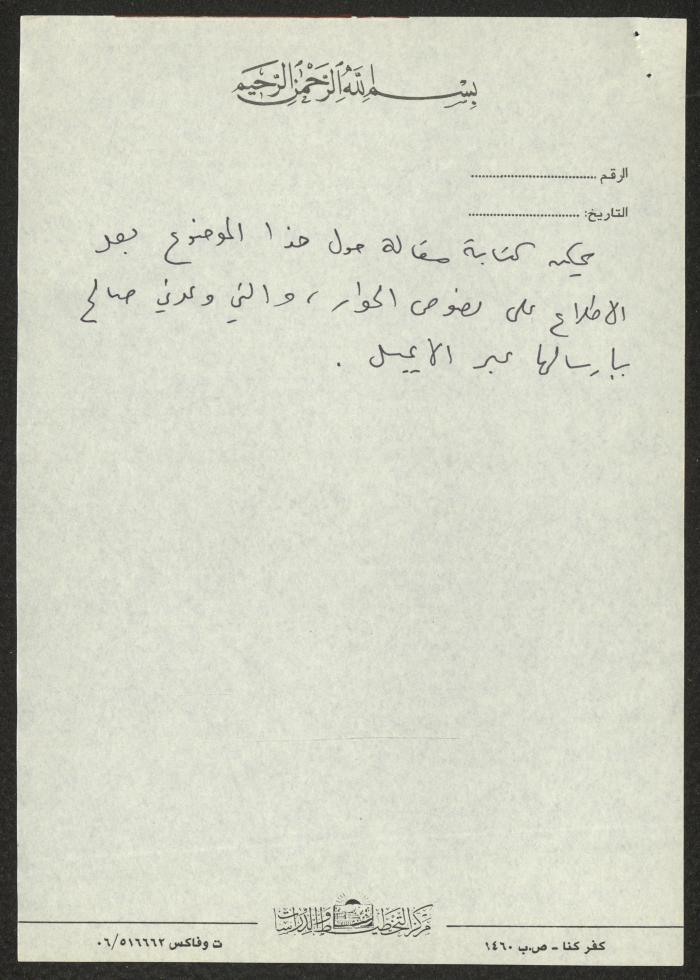 بسم الله الرحمن الرحيم
الرقم ................................
التاريخ: ............................
يمكن كتابة مقالة حول هذا الموضوع بعد
الاطلاع على نصوص الحوار، والتي وعدني صالح
بإرسالها عبر الايميل .
مركز التخطيط والدراسات
كفر كنا - ص.ب ١٤٦٠
ت وفاكس ٠٦/٥١٦٦٦٢